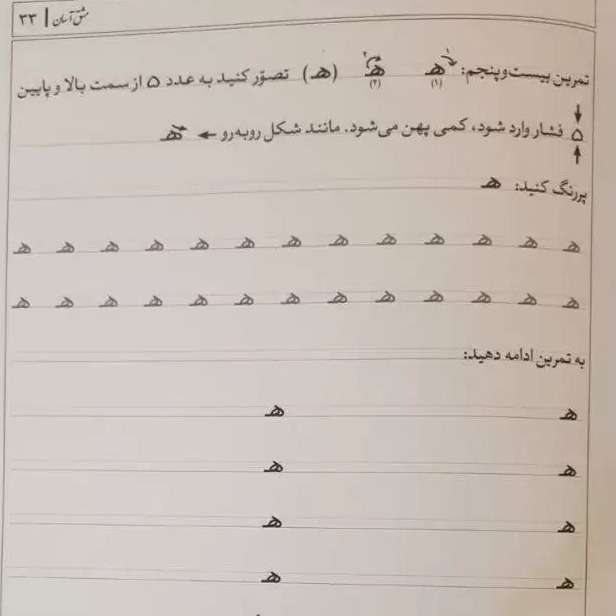 مشق آسان | ۳۳
تمرین بیست و پنجم: هـ (۱) هـ (۲) (هـ) تصوّر کنید به عدد ۵ از سمت بالا و پایین
۵ فشار وارد شود، کمی پهن می‌شود. مانند شکل روبه‌رو ← هـ
پررنگ کنید: هـ
هـ هـ هـ هـ هـ هـ هـ هـ هـ هـ هـ هـ هـ
هـ هـ هـ هـ هـ هـ هـ هـ هـ هـ هـ هـ هـ
به تمرین ادامه دهید:
هـ هـ
هـ هـ
هـ هـ
هـ هـ